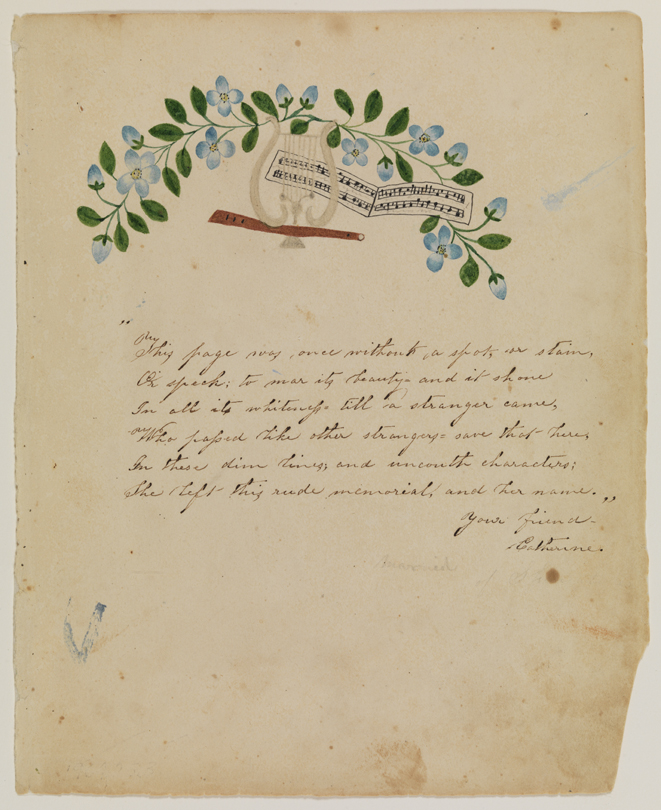 "This page was once without a spot, or stain,
Or speck; to mar its beauty= and it shone
In all its whiteness= till a stranger came,
Who passed like other strangers= save that here,
In these dim lines, and uncouth characters;
She left this rude memorial, and her name."
Your friend-
Catherine.